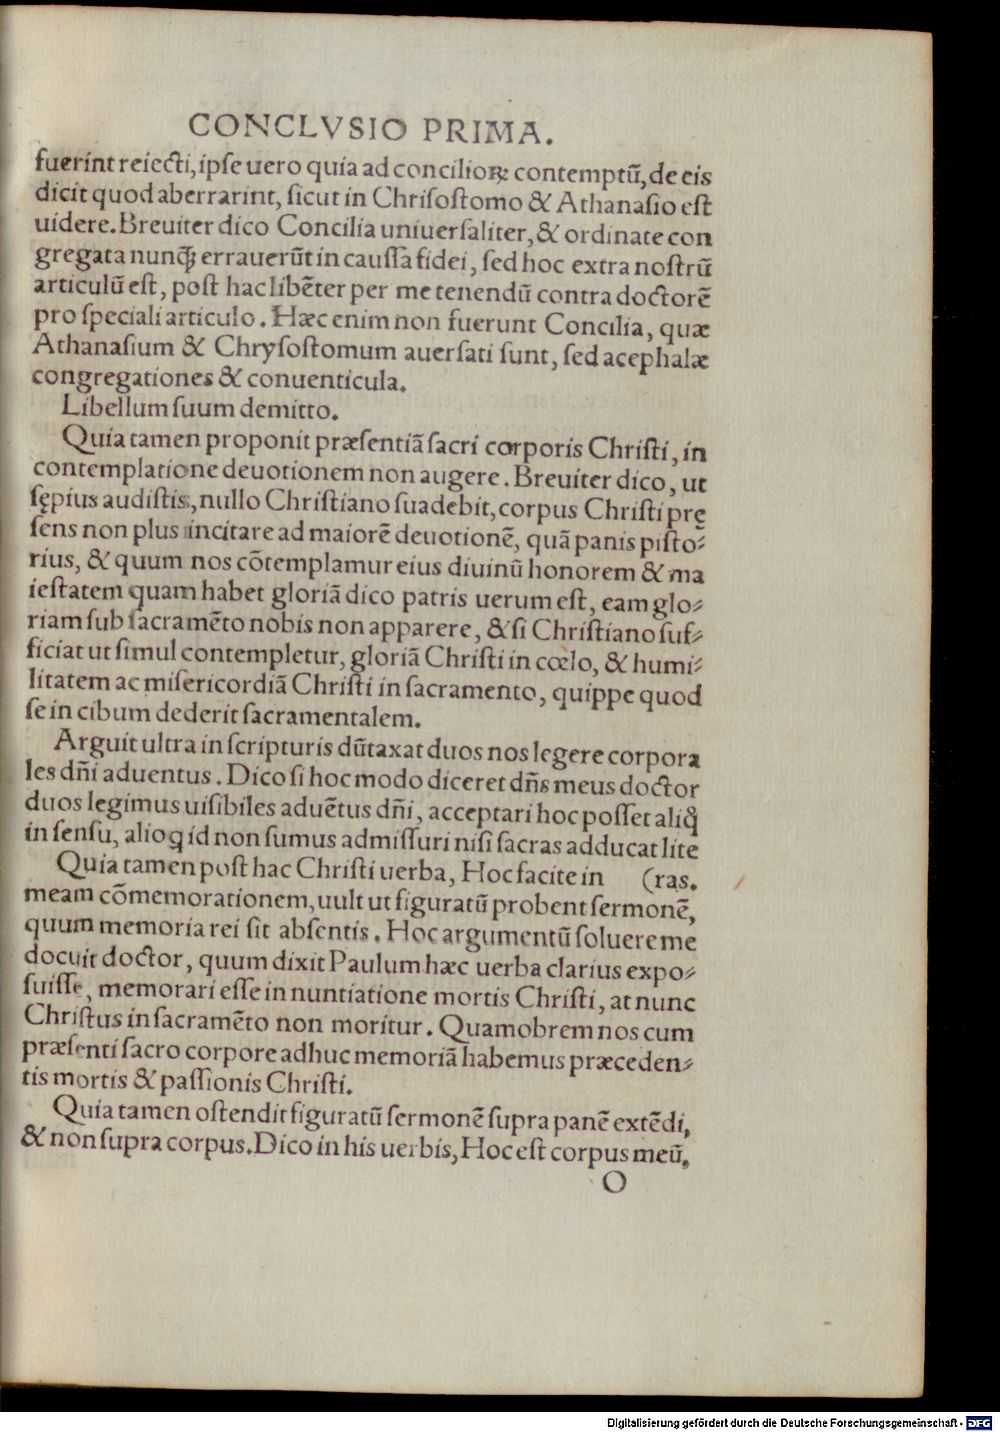 CONCLVSIO PRIMA.
fuerint reiecti, ipse uero quia ad conciliorꝝ contemptũ, de eis
dicit quod aberrarint, sicut in Chrisostomo & Athanasio est
uidere. Breuiter dico Concilia uniuersaliter, & ordinate con
gregata nunꝗ̃ errauerũt in caussa fidei, sed hoc extra nostrũ
articulũ est, post hac libẽter per me tenendũ contra doctorẽ
pro speciali articulo. Hæc enim non fuerunt Concilia, quæ
Athanasium & Chrysostomum auersati sunt, sed acephalæ
congregationes & conuenticula.
Libellum suum demitto.
Quia tamen proponit præsentiã sacri corporis Christi, in
contemplatione deuotionem non augere. Breuiter dico, ut
sępius audistis, nullo Christiano suadebit, corpus Christi prę
sens non plus incitare ad maiorẽ deuotionẽ, quã panis pisto⸗
rius, & quum nos cõtemplamur eius diuinũ honorem & ma
iestatem quam habet gloriã dico patris uerum est, eam glo⸗
riam sub sacramẽto nobis non apparere, & si Christiano suf⸗
ficiat ut simul contempletur, gloriã Christi in cœlo, & humi⸗
litatem ac misericordiã Christi in sacramento, quippe quod
se in cibum dederit sacramentalem.
Arguit ultra in scripturis dũtaxat duos nos legere corpora
les dñi aduentus. Dico si hoc modo diceret dñs meus doctor
duos legimus uisibiles aduẽtus dñi, acceptari hoc posset aliꝗ̃
in sensu, alioq id non sumus admissuri nisi sacras adducat lite
Quia tamen post hac Christi uerba, Hoc facite in (ras.
meam cõmemorationem, uult ut figuratũ probent sermonẽ,
quum memoria rei sit absentis. Hoc argumentũ soluere me
docuit doctor, quum dixit Paulum hæc uerba clarius expo⸗
suisse, memorari esse in nuntiatione mortis Christi, at nunc
Christus in sacramẽto non moritur. Quamobrem nos cum
præsenti sacro corpore adhuc memoriã habemus præceden⸗
tis mortis & passionis Christi.
Quia tamen ostendit figuratũ sermonẽ supra panẽ extẽdi,
& non supra corpus. Dico in his uerbis, Hoc est corpus meũ,
O
Digitalisierung gefördert durch die Deutsche Forschungsgemeinschaft - DFG